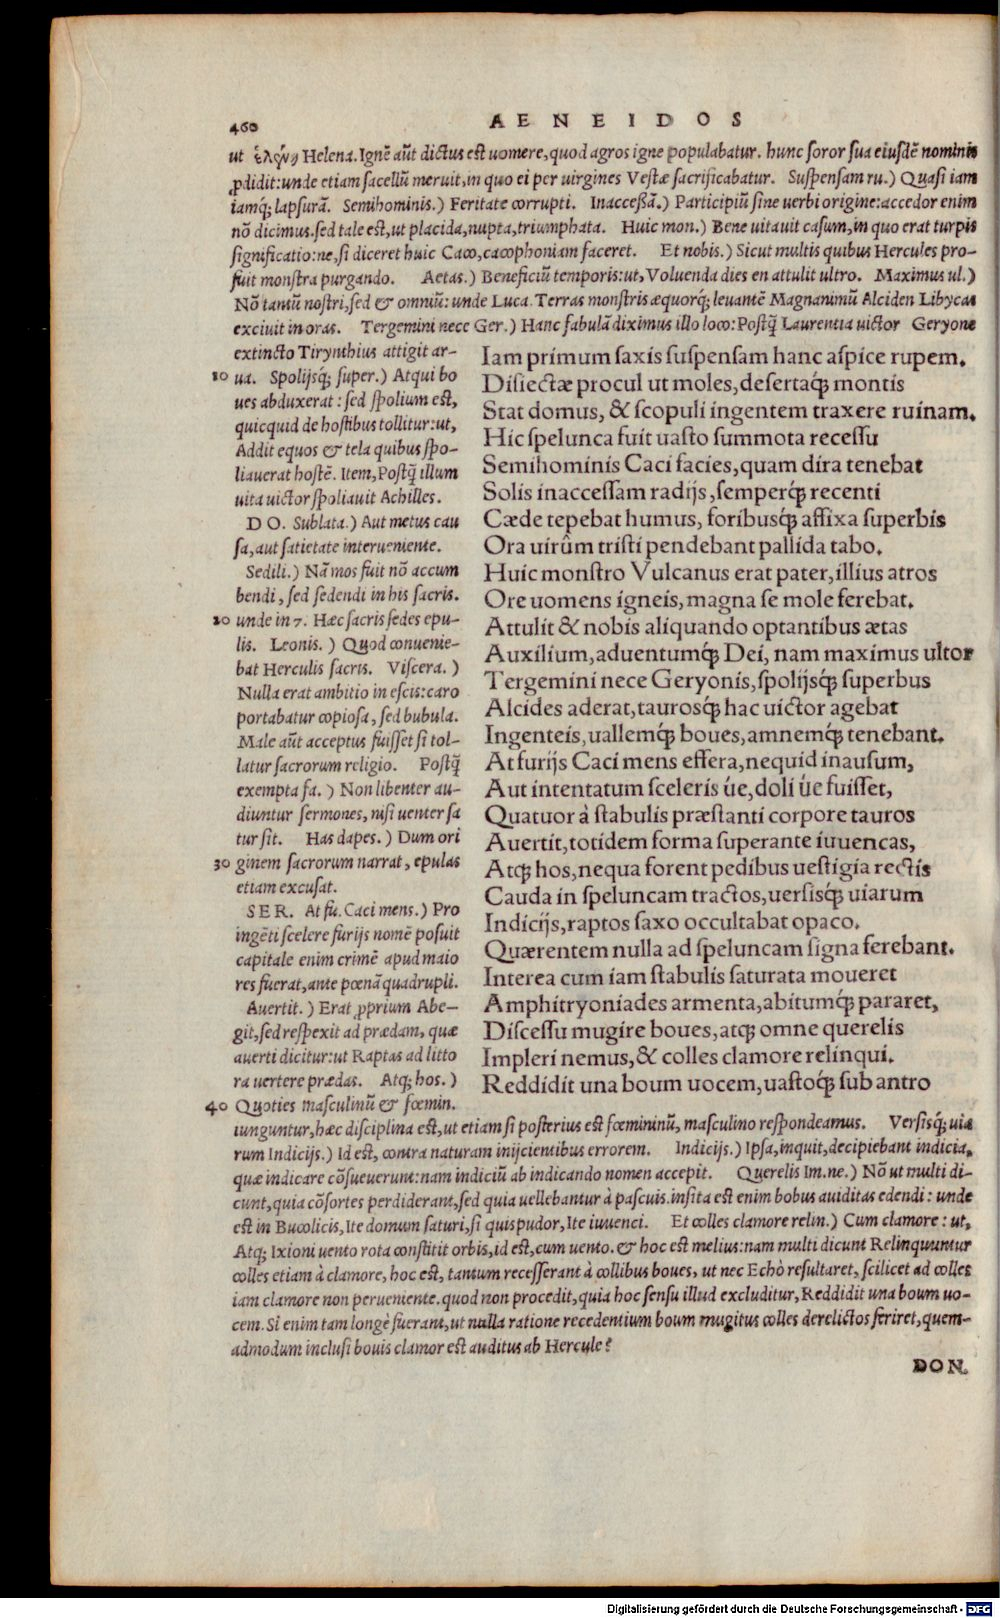 460
AENEIDOS
ut Helena. Ignē aūt dictus est uomere, quod agros igne populabatur. hunc soror sua eiusdē nominis
ꝓdidit: unde etiam sacellū meruit, in quo ei per uirgines Vestæ sacrificabatur. Suspensam ru.) Quasi iam
iamq; lapsurā. Semihominis.) Feritate corrupti. Inaccessā.) Participiū sine uerbi origine: accedor enim
nō dicimus. sed tale est, ut placida, nupta, triumphata. Huic mon.) Bene uitauit casum, in quo erat turpis
significatio: ne, si diceret huic Caco, cacophoniam faceret. Et nobis.) Sicut multis quibus Hercules pro-
fuit monstra purgando. Aetas.) Beneficiū temporis: ut, Voluenda dies en attulit ultro. Maximus ul.)
Nō tantū nostri, sed & omniū: unde Luca. Terras monstris æquorq; leuantē Magnanimū Alciden Libycas
exciuit in oras. Tergemini nece Ger.) Hanc fabulā diximus illo loco: Postq̄ Laurentia uictor Geryone
extincto Tirynthius attigit ar-
10 ua. Spolijsq; super.) Atqui bo
ues abduxerat: sed spolium est,
quicquid de hostibus tollitur: ut,
Addit equos & tela quibus spo-
liauerat hostē. Item, Postq̄ illum
uita uictor spoliauit Achilles.
DO. Sublata.) Aut metus cau
sa, aut satietate interueniente.
Sedili.) Nā mos fuit nō accum
bendi, sed sedendi in his sacris.
20 unde in 7. Hæc sacris sedes epu-
lis. Leonis.) Quod conuenie-
bat Herculis sacris. Viscera.)
Nulla erat ambitio in escis: caro
portabatur copiosa, sed bubula.
Male aūt acceptus fuisset si tol-
latur sacrorum religio. Postq̄
exempta fa.) Non libenter au-
diuntur sermones, nisi uenter sa
tur sit. Has dapes.) Dum ori
30 ginem sacrorum narrat, epulas
etiam excusat.
SER. At fu. Caci mens.) Pro
ingēti scelere furijs nomē posuit
capitale enim crimē apud maio
res fuerat, ante pœnā quadrupli.
Auertit.) Erat ꝓprium Abe-
git, sed respexit ad prædam, quæ
auerti dicitur: ut Raptas ad litto
ra uertere prædas. Atq; hos.)
40 Quoties masculinū & fœmin.
Iam primum saxis suspensam hanc aspice rupem.
Disiectæ procul ut moles, desertaq́; montis
Stat domus, & scopuli ingentem traxere ruinam.
Hic spelunca fuit uasto summota recessu
Semihominis Caci facies, quam dira tenebat
Solis inaccessam radijs, semperq́; recenti
Cæde tepebat humus, foribusq́; affixa superbis
Ora uirûm tristi pendebant pallida tabo.
Huic monstro Vulcanus erat pater, illius atros
Ore uomens igneis, magna se mole ferebat.
Attulit & nobis aliquando optantibus ætas
Auxilium, aduentumq́; Dei, nam maximus ultor
Tergemini nece Geryonis, spolijsq́; superbus
Alcides aderat, taurosq́; hac uictor agebat
Ingenteis, uallemq́; boues, amnemq́; tenebant.
At furijs Caci mens effera, nequid inausum,
Aut intentatum sceleris úe, doli úe fuisset,
Quatuor à stabulis præstanti corpore tauros
Auertit, totidem forma superante iuuencas,
Atq; hos, nequa forent pedibus uestigia rectis
Cauda in speluncam tractos, uersisq́; uiarum
Indicijs, raptos saxo occultabat opaco.
Quærentem nulla ad speluncam signa ferebant.
Interea cum iam stabulis saturata moueret
Amphitryoniades armenta, abitumq́; pararet,
Discessu mugire boues, atq; omne querelis
Impleri nemus, & colles clamore relinqui.
Reddidit una boum uocem, uastoq́; sub antro
iunguntur, hæc disciplina est, ut etiam si posterius est fœmininū, masculino respondeamus. Versisq́; uia
rum Indicijs.) Id est, contra naturam inijcientibus errorem. Indicijs.) Ipsa, inquit, decipiebant indicia,
quæ indicare cōsueuerunt: nam indiciū ab indicando nomen accepit. Querelis Im. ne.) Nō ut multi di-
cunt, quia cōsortes perdiderant, sed quia uellebantur à pascuis. insita est enim bobus auiditas edendi: unde
est in Bucolicis, Ite domum saturi, si quis pudor, Ite iuuenci. Et colles clamore relin.) Cum clamore: ut,
Atq; Ixioni uento rota constitit orbis, id est, cum uento. & hoc est melius: nam multi dicunt Relinquuntur
colles etiam à clamore, hoc est, tantum recesserant à collibus boues, ut nec Echò resultaret, scilicet ad colles
iam clamore non perueniente. quod non procedit, quia hoc sensu illud excluditur, Reddidit una boum uo-
cem. Si enim tam longè fuerant, ut nulla ratione recedentium boum mugitus colles derelictos feriret, quem-
admodum inclusi bouis clamor est auditus ab Hercule?
DON.
Digitalisierung gefördert durch die Deutsche Forschungsgemeinschaft - DFG